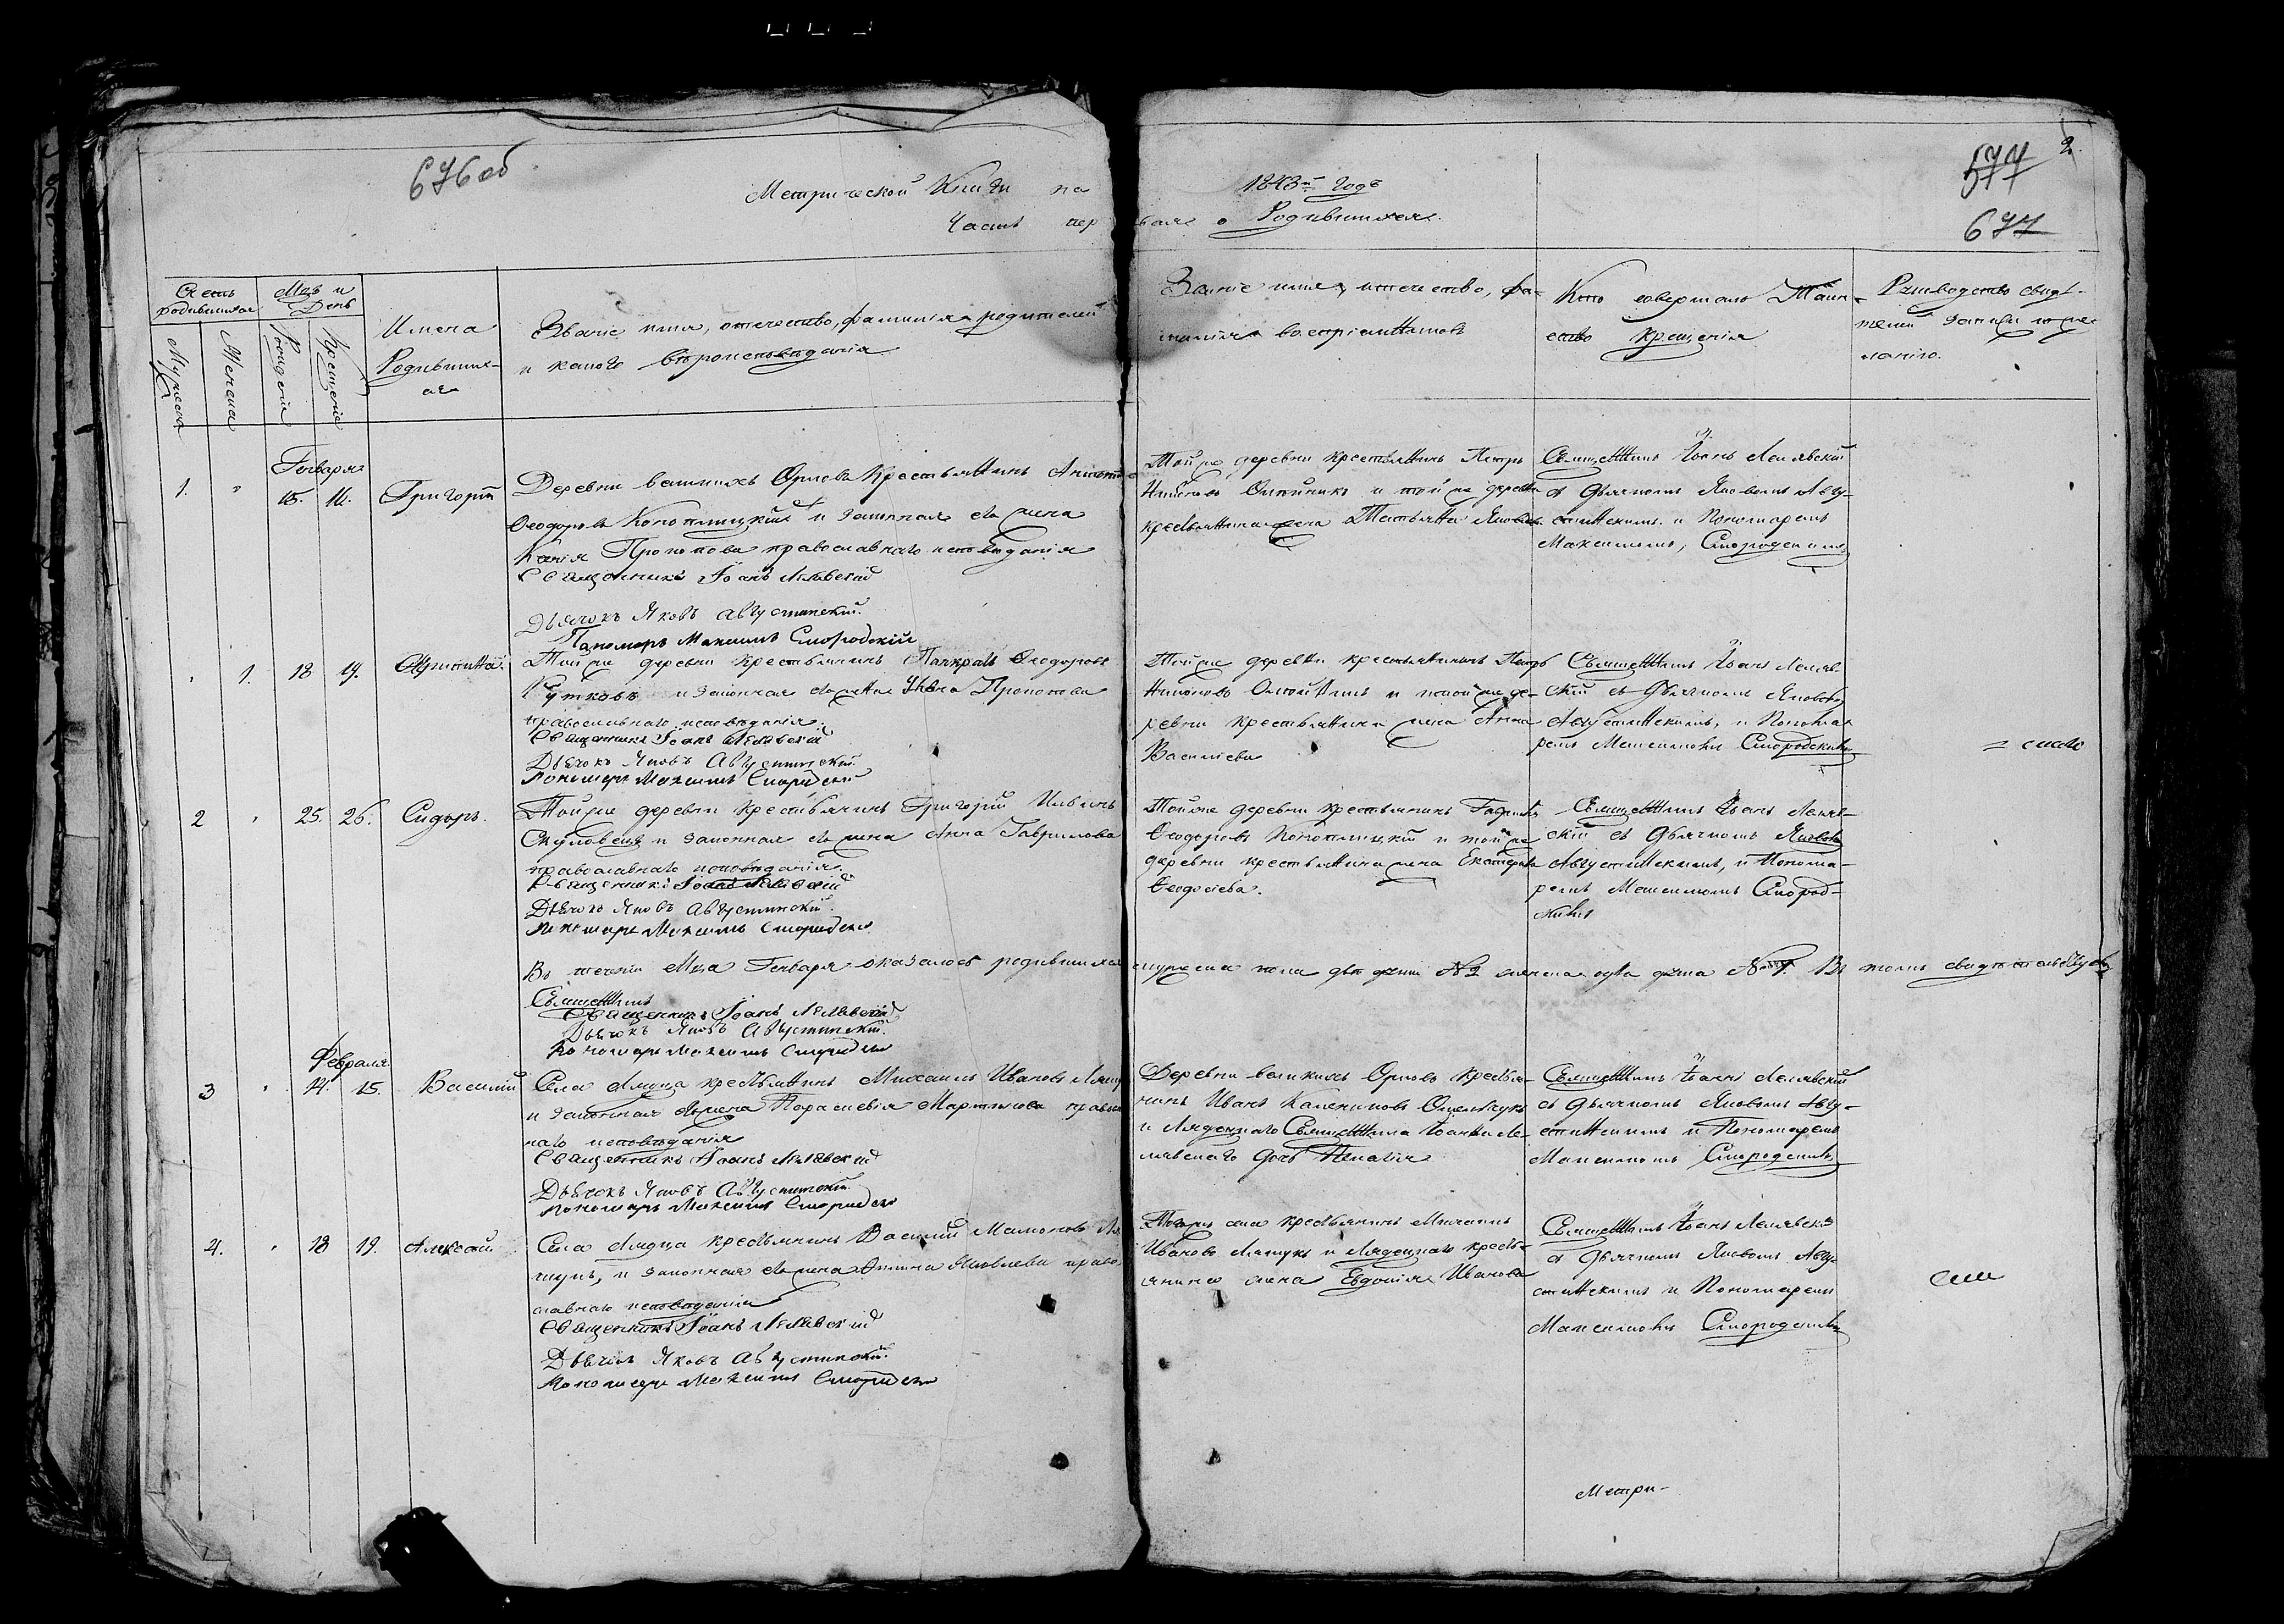 676 об
577
2.
677
Метрической Книги на 1843й годъ
Часть первая о Родившихся.
Счетъ родившихся
Мужеска
Женска
Мцъ и День
Рожденіе
Крещеніе
Имена
Родивших-
ся
Званіе имя, отечество, фамилія родителей
и какого вѣроисповѣданія
Званіе имя, отечество, фа-
милія воспріемниковъ
Кто совершалъ Таин-
ство крещенія
Рукоприкладство свидѣ-
телей записи по же-
ланію.
Генваря
1. " 15. 16. Григорій
Деревни великихъ Орлова Крестьянинъ Антоній
Ѳеодоровъ Коноплицкій и законная его жена
Прокопова православнаго исповѣданія
Священникъ Іоанъ Лелявскій
Дьячокъ Яковъ Августинскій.
Паномарь Максимъ Смородскій
Тойже деревни крестьянинъ Петръ
и тойже деревни
крестьянина жена Татьяна
Священникъ Іоанъ Лелявскій
съ Дьячкомъ Яковомъ Авгу-
стинскимъ и Пономаремъ
Максимомъ, Смородскимъ
" 1. 18 19.
Тойже деревни крестьянинъ Панкратъ Ѳеодоровъ
и законная его жена Прокопова
православнаго исповѣданія.
Священникъ Іоанъ Лелявскій
Дьячокъ Яковъ Августинскій.
Пономарь Максимъ Смородскій
Тойже деревни крестьянинъ Петръ
и тойже де-
ревни крестьянина жена Анна
Василіева
Священникъ Іоанъ Леляв-
скій съ Дьячкомъ Яковомъ
Августинскимъ, и Понома-
ремъ Максимомъ Смородскимъ
2 " 25. 26. Сидоръ.
Тойже деревни крестьянинъ Григорій
и законная его жена Анна Гаврилова
православнаго исповѣданія.
Священникъ Іоанъ Лелявскій
Дьячокъ Яковъ Августинскій.
Пономарь Максимъ Смородскій
Тойже деревни крестьянинъ Гавріилъ
Ѳеодоровъ Коноплицкій и тойже
деревни крестьянина жена Екатерина
Ѳеодосіева.
Священникъ Іоанъ Леляв-
скій съ Дьячкомъ Яковомъ
Августинскимъ, и Понома-
ремъ Максимомъ Смород-
скимъ
Въ теченіи Мца Генваря оказалось родившихся мужеска пола двѣ души №2 женска одна душа №1. Въ томъ свидѣтельствуемъ
Священникъ
Священникъ Іоанъ Лелявскій
Дьячокъ Яковъ Августинскій.
Пономарь Максимъ Смородскій
Февраля
3 " 14. 15. Василій
Села Лядца крестьянинъ Михаилъ Ивановъ
и законная его жена Параскевія Мартинова православ
наго исповѣданія
Священникъ Іоанъ Лелявскій
Дьячокъ Яковъ Августинскій.
Пономарь Максимъ Смородскій
Деревни великихъ Орлова крестья-
нинъ Иванъ
и Лядецкаго Священника Іоанна Ле-
лявскаго дочь
Священникъ Іоанъ Лелявскій
съ Дьячкомъ Яковомъ Авгу-
стинскимъ и Пономаремъ
Максимомъ Смородскимъ
4. " 18 19. Алексѣй
Села Лядца крестьянинъ Василій
и законная его жена Яковлева право
славнаго исповѣданія
Священникъ Іоанъ Лелявскій
Дьячокъ Яковъ Августинскій.
Пономарь Максимъ Смородскій
Тогоже села крестьянинъ Михаилъ
Ивановъ и Лядецкаго кресть-
янина жена Евдокія Иванова
Священникъ Іоанъ Лелявскій
съ Дьячкомъ Яковомъ Авгу-
стинскимъ и Пономаремъ
Максимомъ Смородскимъ
Метри-